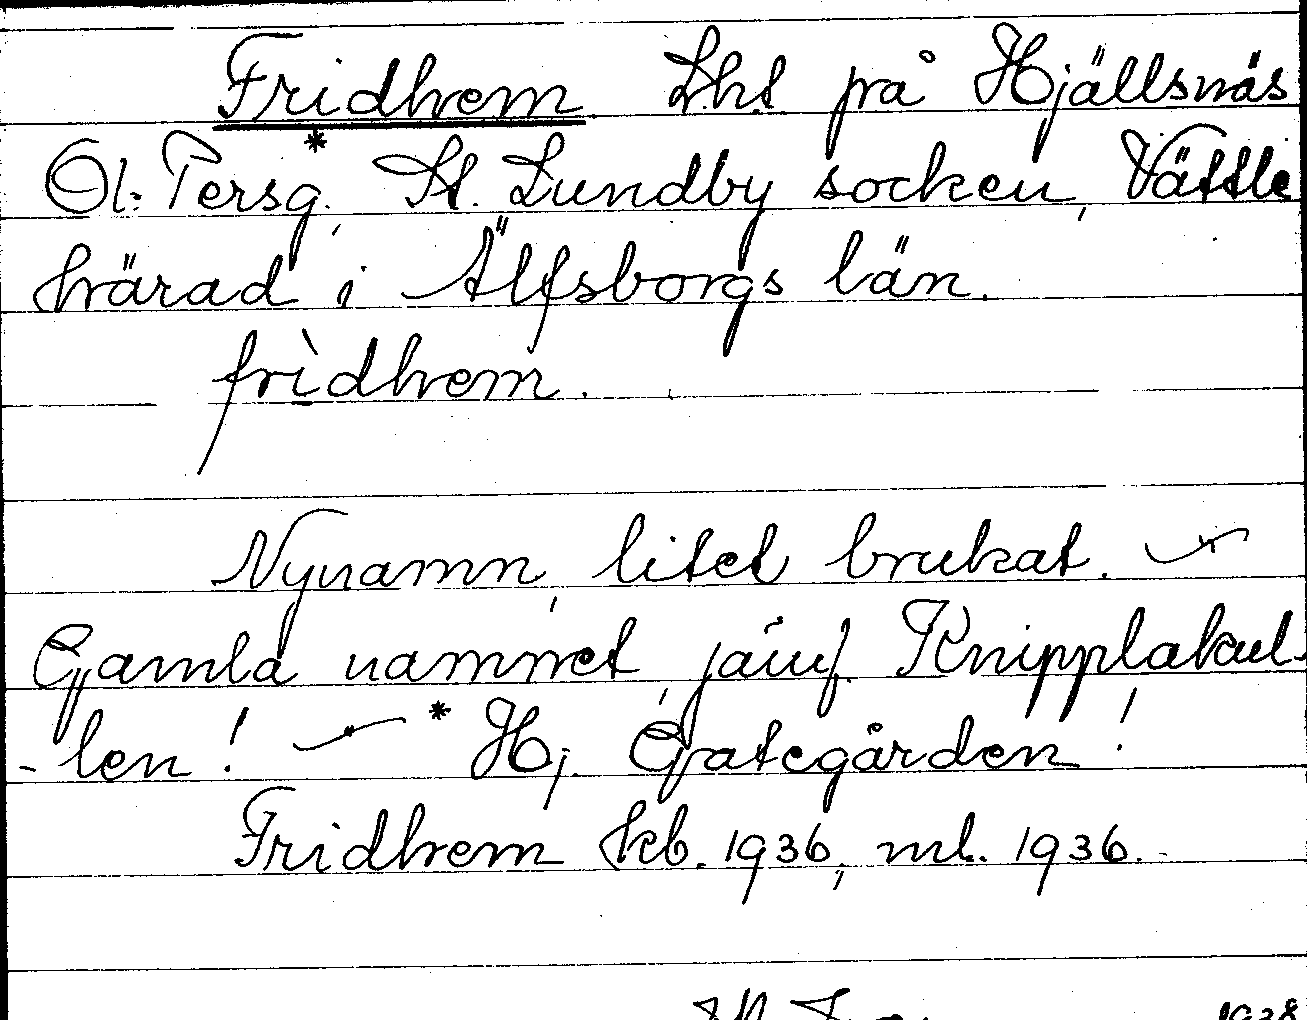 Fridhem Lht på Hjällsnäs
Ol. Persg.,* St. Lundby socken, Vättle
härad i Älfsborgs län.
frìdhem.
Nynamn, litet brukat. —
Gamla namnet, jämf. Knipplakul-
-len! — * Hj. Gategården!
Fridhem kb. 1936, ml. 1936.
1938